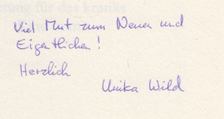 Viel Mut zum Neuen und
Eigentlichen!
Herzlich
Ulrika Wild